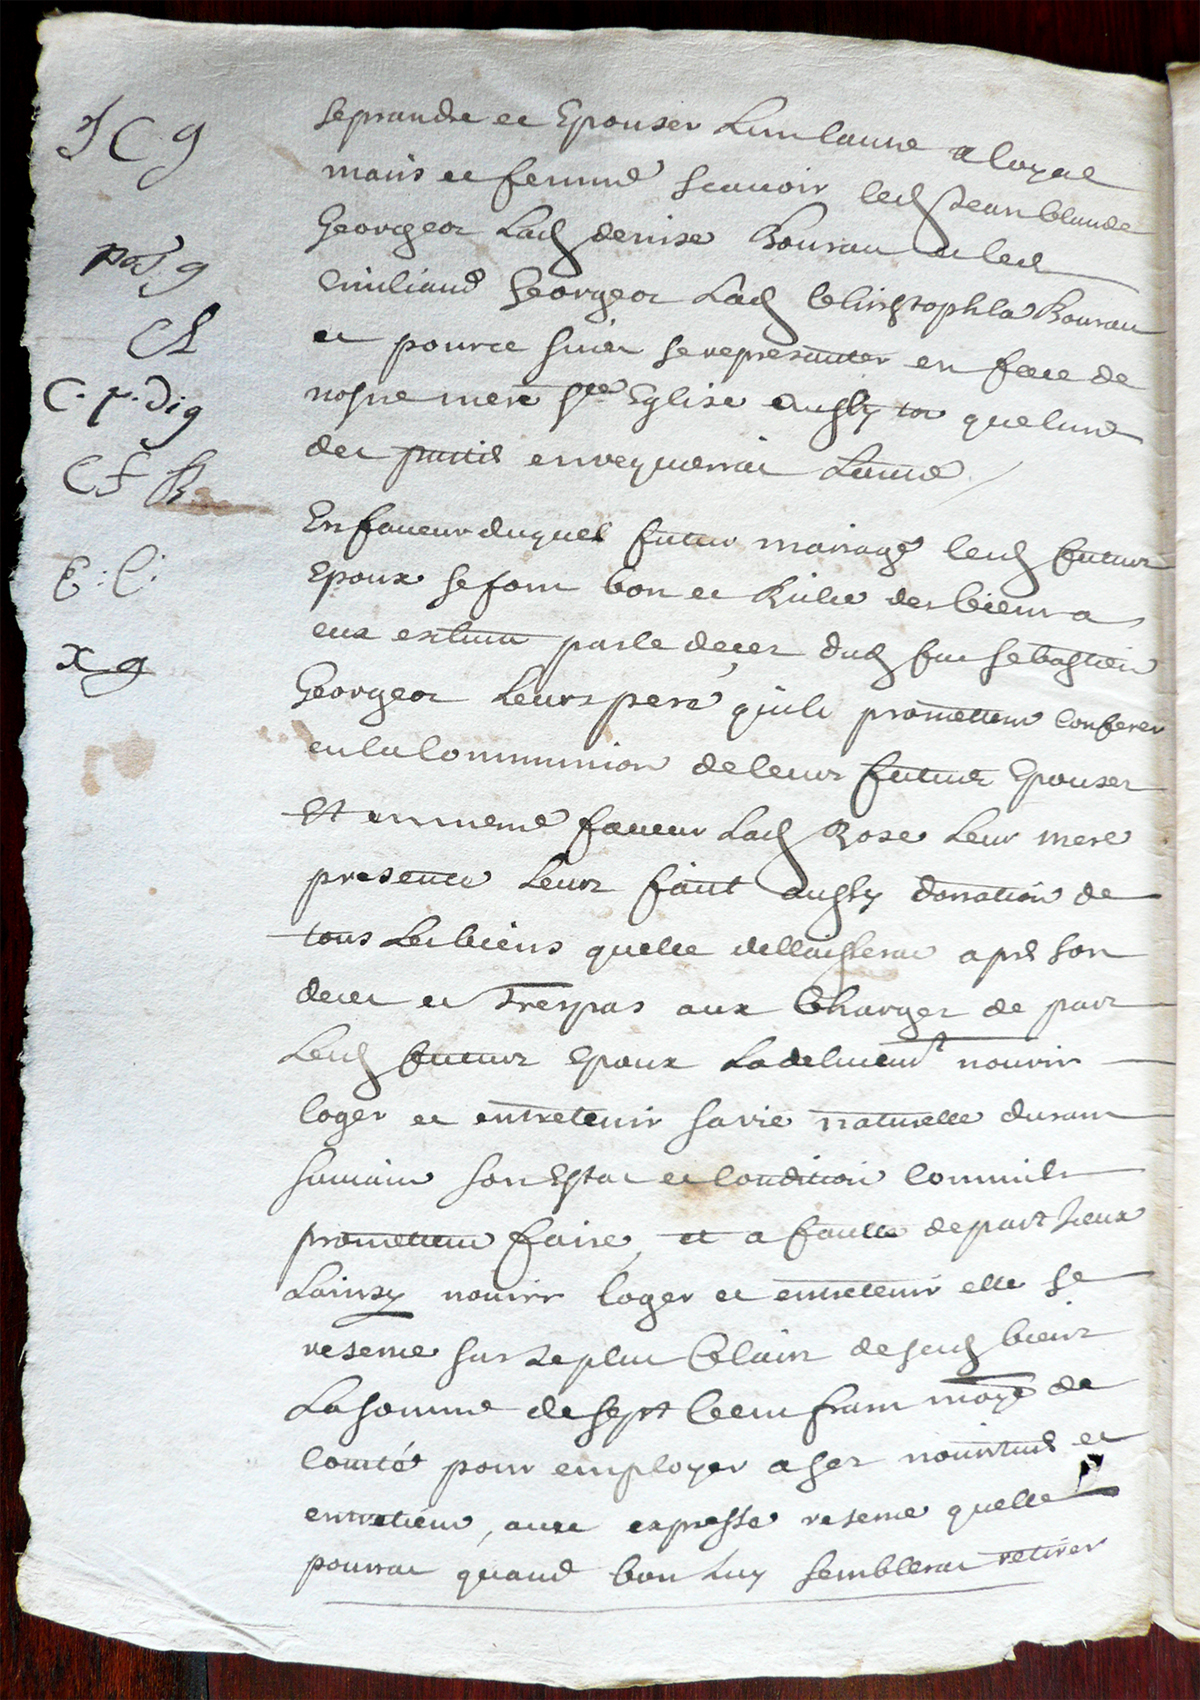 J C g
se prandre et Epouser Lun lautre a loyal
maris et femme scauoir led Jean Claude
pat g
Georgeot Lad denise Bourau et led
Emiliand Georgeot Lad Christophla Bourau
C L
et pource suier se representer en face de
C. p. di g
nostre mere Ste Eglise aussy tot quelune
C F B
des parties en requerrat Lautre
En faueur duquel futur mariage led futurs
E : C :
Epoux se font bon et Riche des biens a
X g
eux exheus par le deces dud fut Sebastien
Georgeot Leurs pere quils promettent Conferer
en la Communion de leurs futures Epouses
Et en meme faueur Lad Rose Leur mere
presente Leurs faict aussy donation de
tous Les biens quelle dellaisserat apres son
deces et trespas aux Charges de part
Led futurs Epoux Ladeluemt nourir
loger et entretenir sa vie naturelle durant
suiuant son Estat et Condition Comm ils
promettent faire, et a faulte de part Iceux
Lainsy nourir loger et entretenir elle se
reserue sur Le plus Clair de sesd biens
La somme de sept Cent frans monoye de
Comté pour employer a ses nouritures et
entretiens, auec expresse reserue quelle
pourrat quand bon Luy semblerat retirer